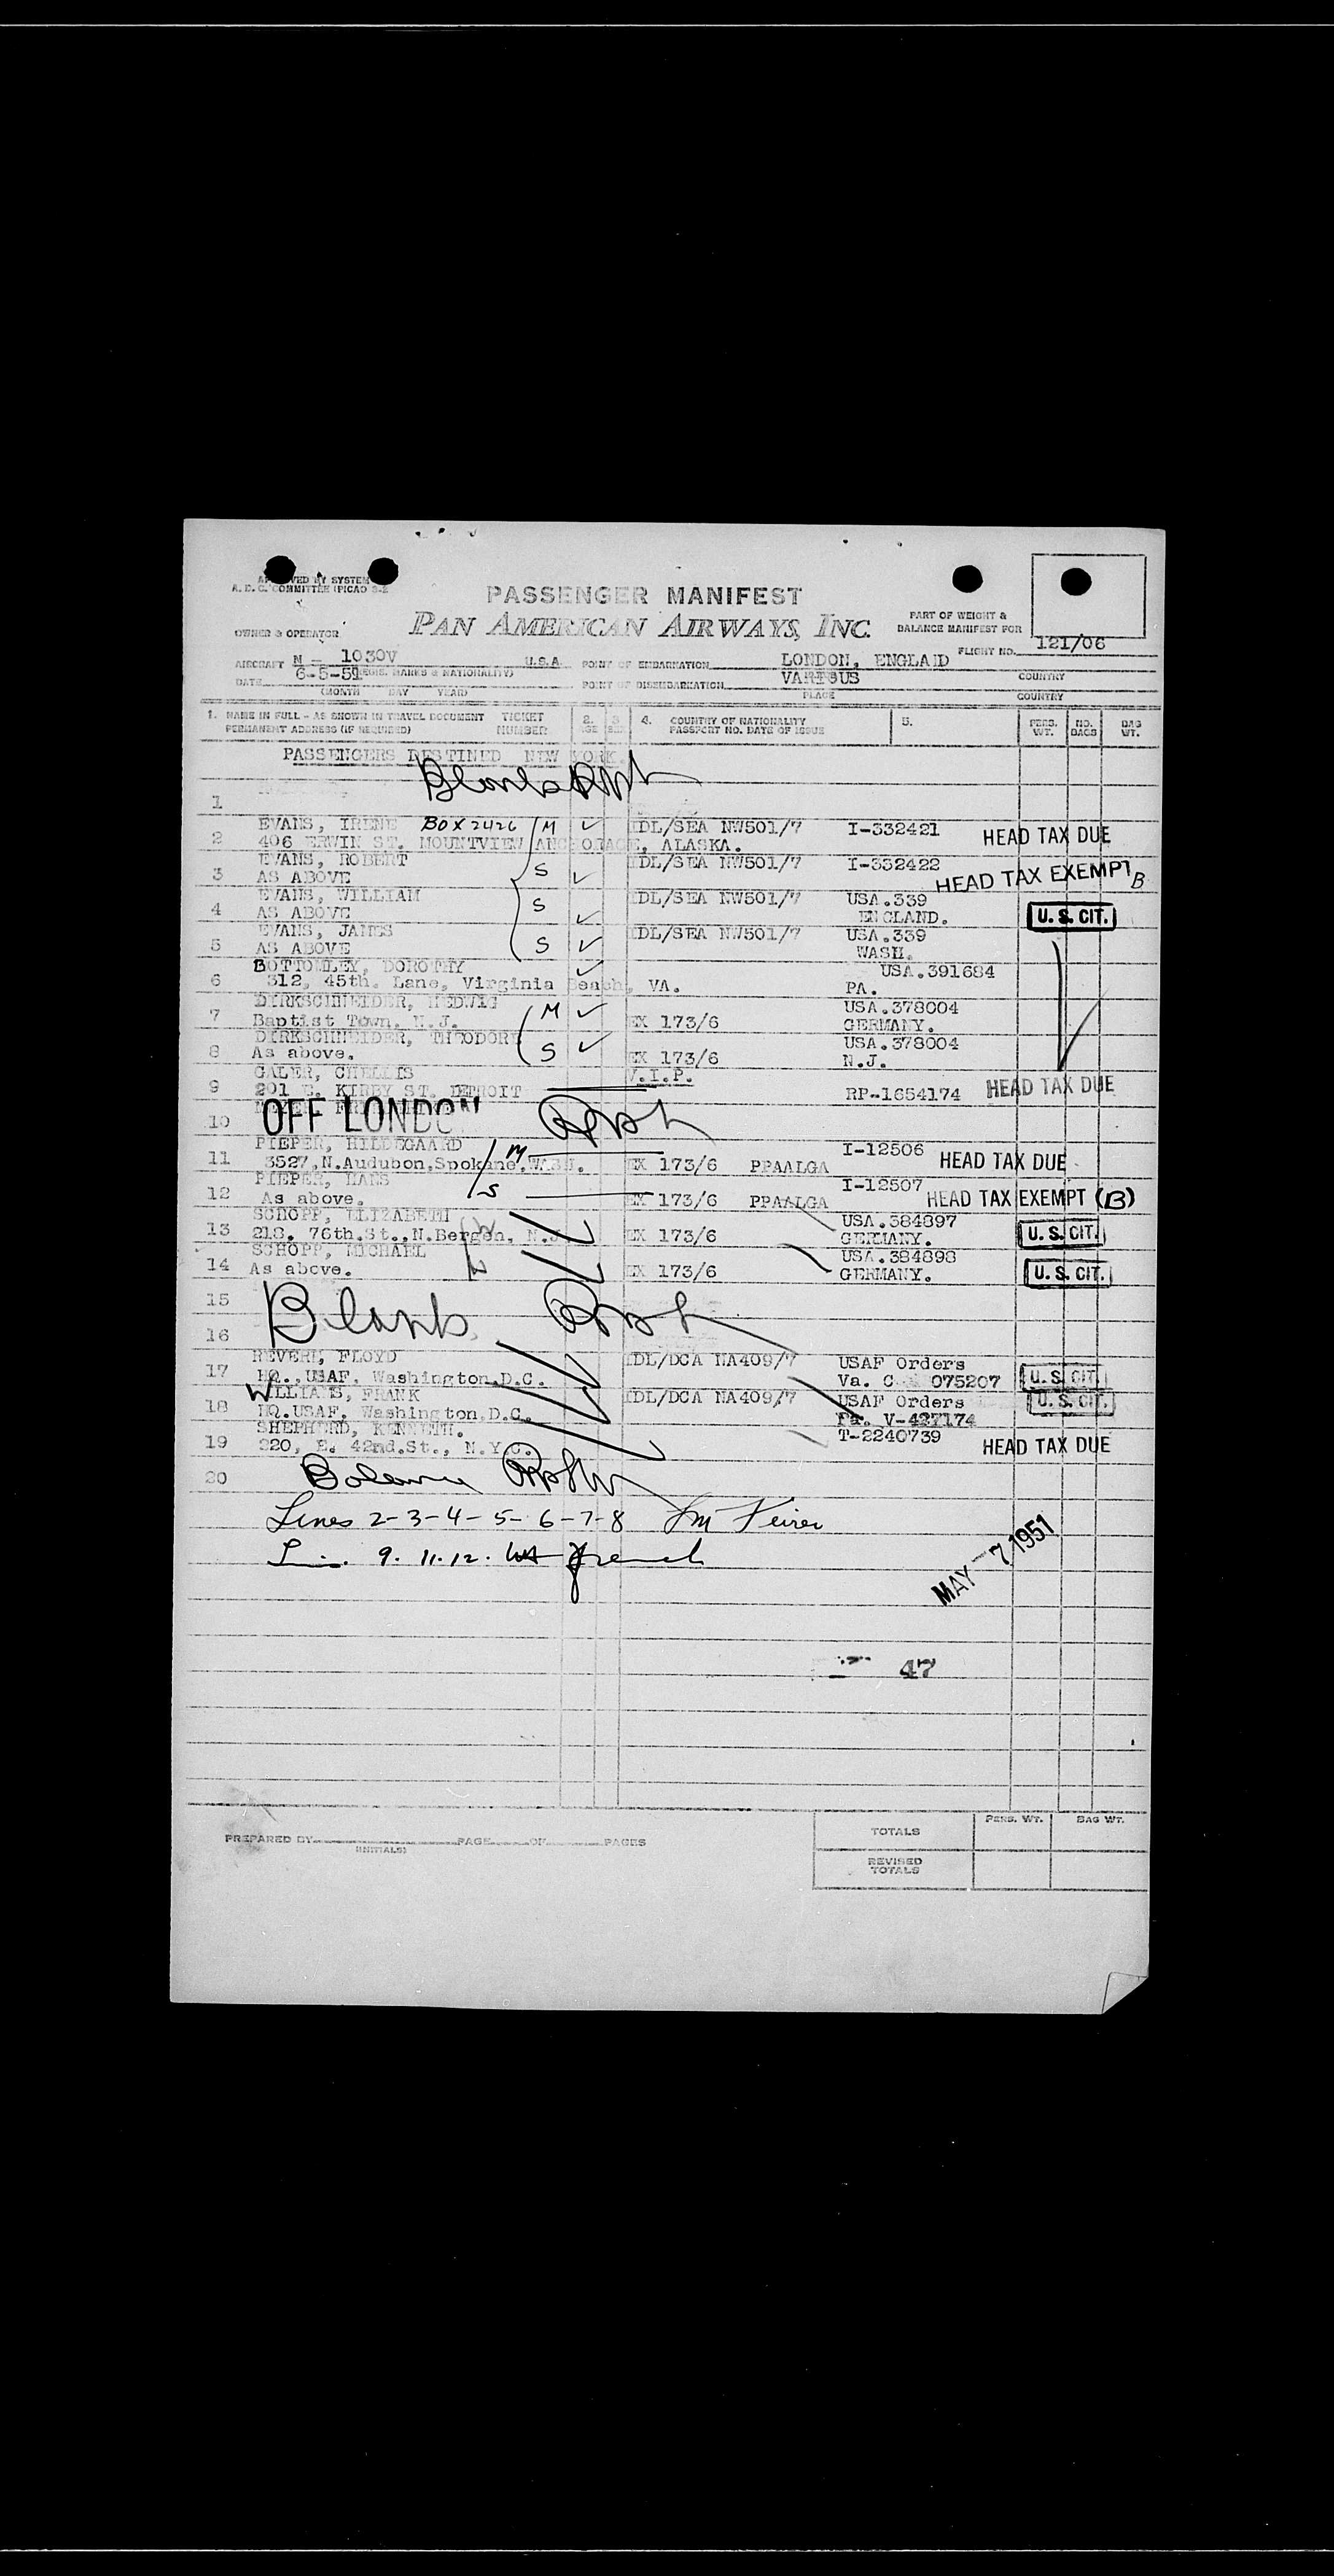 APPROVED BY SYSTEM
A. D. C. COMMITTEE (PICAO S-2
PASSENGER MANIFEST
PAN AMERICAN AIRWAYS, INC.
PART OF WEIGHT &
BALANCE MANIFEST FOR
OWNER & OPERATOR
FLIGHT NO. 121/06
AIRCRAFT N - 1030V U.S.A. POINT OF EMBARKATION LONDON, ENGLAID
(REGIS. MARKS & NATIONALITY) COUNTRY
DATE 6-5-51 POINT OF DISEMBARKATION VARIOUS
(MONTH DAY YEAR) PLACE COUNTRY
1. NAME IN FULL - AS SHOWN IN TRAVEL DOCUMENT TICKET 2. 3 4. COUNTRY OF NATIONALITY 5. PERS. NO. BAG
PERMANENT ADDRESS (IF REQUIRED) NUMBER AGE SEX PASSPORT NO. DATE OF ISSUE WT. BAGS WT.
PASSENGERS DESTINED NEW YORK.
Blank
1
EVANS, IRENE BOX 2426 M IDL/SEA NW501/7 I-332421 HEAD TAX DUE
2 406 ERWIN ST. MOUNTVIEW ANCHORAGE, ALASKA.
EVANS, ROBERT S IDL/SEA NW501/7 I-332422 HEAD TAX EXEMPT B
3 AS ABOVE
EVANS, WILLIAM S IDL/SEA NW501/7 USA.339
4 AS ABOVE ENGLAND. U. S. CIT.
EVANS, JAMES S IDL/SEA NW501/7 USA.339
5 AS ABOVE WASH.
BOTTOMLEY, DOROTHY USA.391684
6 312, 45th. Lane, Virginia Beach, VA. PA.
DIRKSCHNEIDER, HEDWIG M USA.378004
7 Baptist Town, N.J. EX 173/6 GERMANY.
DIRKSCHNEIDER, THEODORE S USA.378004
8 As above. EX 173/6 N.J.
GALER, CHELLIS V.I.P.
9 201 E. KIRBY ST. DETROIT RP-1654174 HEAD TAX DUE
10 OFF LONDON
PIEPER, HILDEGAARD M I-12506
11 3527,N.Audubon,Spokane,WASH. EX 173/6 PPAALGA HEAD TAX DUE
PIEPER, HANS S I-12507
12 As above. EX 173/6 PPAALGA HEAD TAX EXEMPT (B)
SCHOPP, ELIZABETH USA.384897
13 218. 76th.St.,N.Bergen, N.J. EX 173/6 GERMANY. U. S. CIT.
SCHOPP, MICHAEL USA.384898
14 As above. EX 173/6 GERMANY. U. S. CIT.
15
Blank
16
REVERE, FLOYD IDL/DCA NA409/7 USAF Orders
17 HQ.,USAF, Washington,D.C. Va. C 075207 U. S. CIT.
WILLIAMS, FRANK IDL/DCA NA409/7 USAF Orders U. S. CIT.
18 HQ.USAF, Washington,D.C. Pa. V-427174
SHEPHERD, KENNETH. T-2240739
19 220, E. 42nd.St., N.Y.C. HEAD TAX DUE
20
Balance
Lines 2-3-4-5-6-7-8
9. 11. 12. French
MAY -7 1951
47
PREPARED BY PAGE OF PAGES
(INITIALS)
PERS. WT. BAG WT.
TOTALS
REVISED
TOTALS